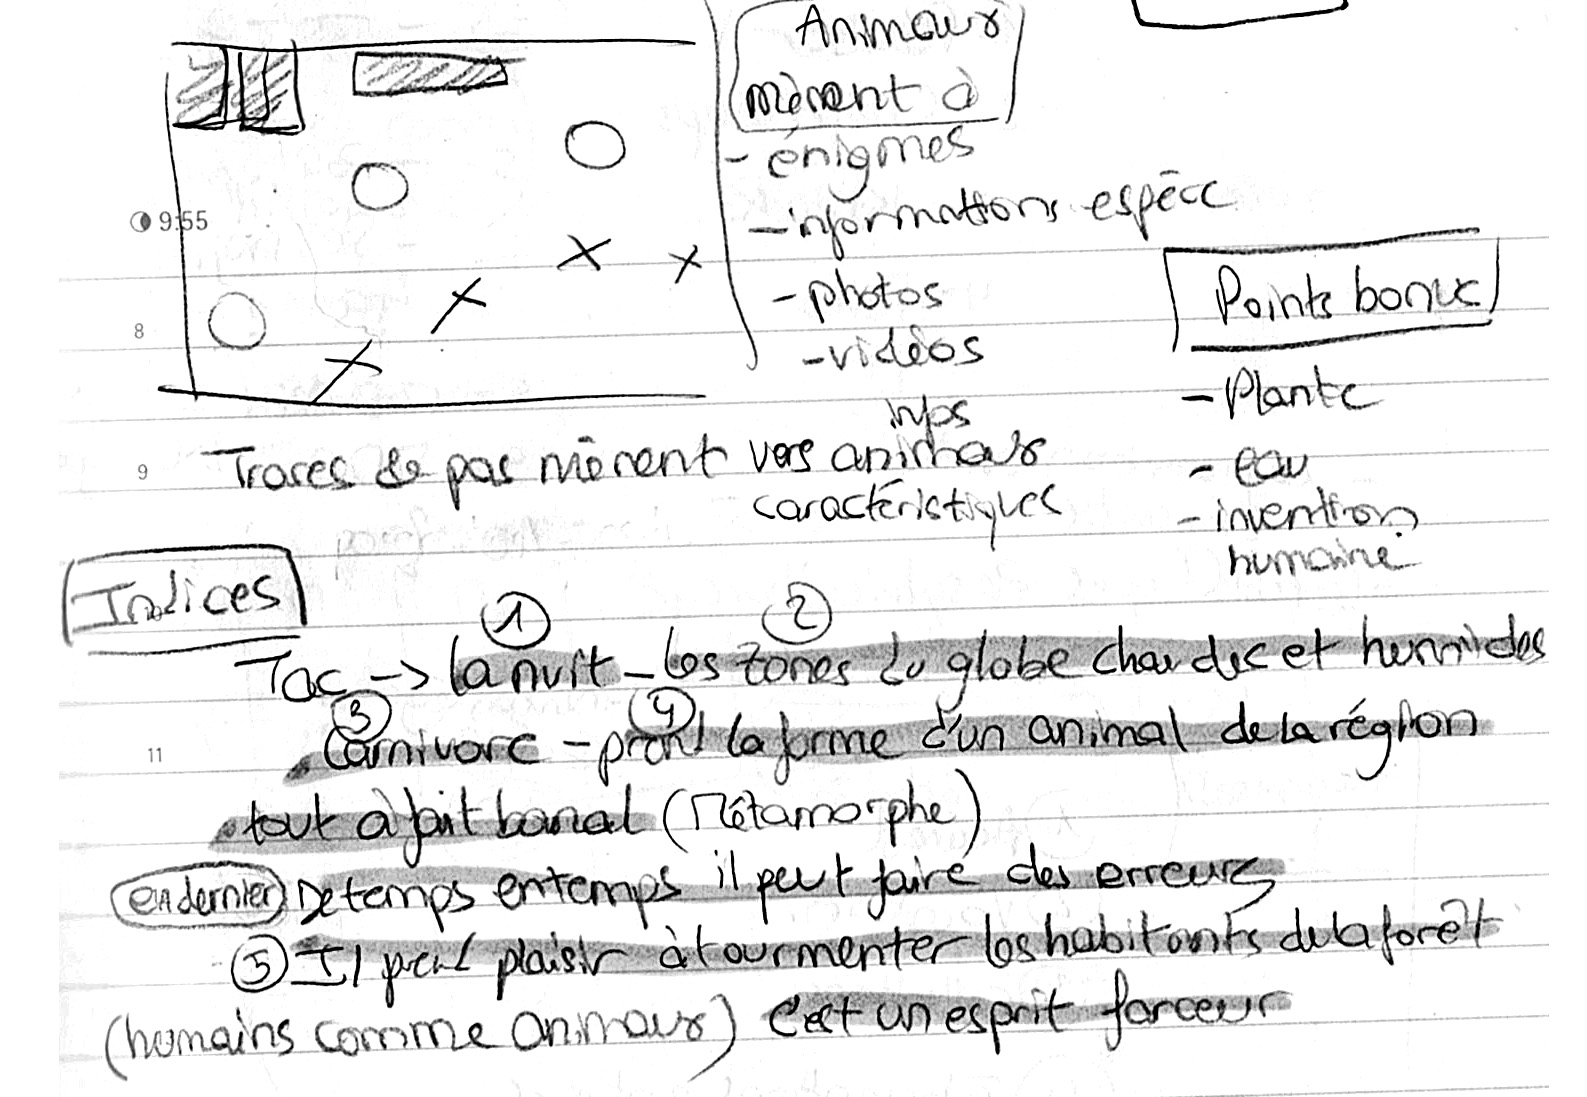 Animaux
mènent à
- énigmes
- informations espèce
- photos
- vidéos
9:55
8
9
11
Points bonus
- Plante
- eau
- invention
humaine
infos
Traces de pas mènent vers animaux
caractéristiques
Indices
1 2
Tac -> la nuit - les zones du globe chaudes et humides
3 4
Carnivore - prend la forme d'un animal de la région
tout à fait banal (Métamorphe)
en dernier De temps en temps il peut faire des erreurs
5 Il prend plaisir à tourmenter les habitants de la forêt
(humains comme animaux) C'est un esprit farceur